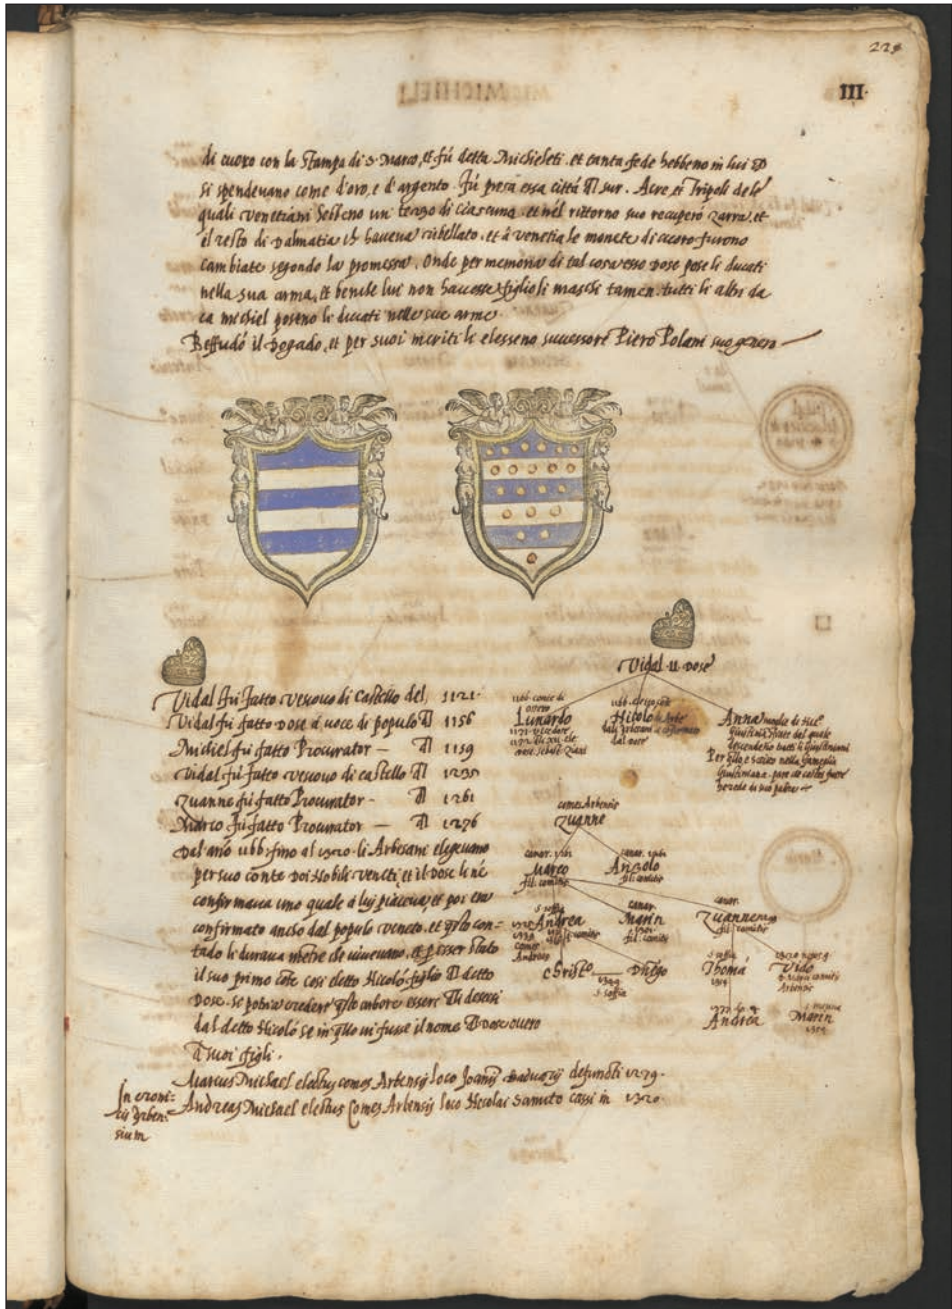 III·
di cuoro con la stampa di S. Marco, et fú detta Micheleti. et tanta fede hebbeno in lui
si spendevano come d'oro, e d'argento. fú presa essa città sur. Acre, et Tripoli dele
quali venetiani hebbeno un terzo di ciascuna. et nél rittorno suo recuperó Zarra, et
il resto di Dalmatia haveva ribellato. et á venetia le monete di cuoro furono
cambiate segondo la promessa. Onde per memoria di tal cosa esso Dose pose li ducati
nella sua arma, et benche lui non havesse figlioli maschi tamen tutti li altri da
ca michiel poseno li ducati nelle sue arme
Reffudó il Dogado, et per suoi meriti li elesseno successore Piero Polani suo genero
Vidal fu fatto vescovo di Castello del 1121·
Vidal fu fatto Dose á voce di populo 1156
Michiel fu fatto Procurator — 1159
Vidal fú fatto vescovo di castello 1235
Zuanne fu fatto Procurator — 1261
Marco fu fatto Procurator — 1276
Dal año 1166 fino al 1320 li Arbesani elegevano
per suo conte Doi Nobili veneti, et il Dose li né
confirmava uno quale á luj piaceva, et poi era
confirmato anco dal populo veneto, et con-
tado li durava mentre che vivevano, et esser stato
il suo primo cosi detto Nicoló figlio detto
Dose, se potria credere essere descesi
dal detto Nicoló se in vi fusse il nome Dose overo
suoi figli.
Marcus Michael electus comes Arbensis loco Joannis Baduarij defuncti 1279·
Andreas Michael electus Comes Arbensis loco Nicolai Sanuto cassi in 1320
In croni=
cis Arben=
sium
Vidal II Dose
1166 conte di
ossero
Lunardo
Nicolo
Anna
descendeno tutti li Giustiniani
Giustiniana
herede di suo padre
comes Arbensis
Zuanne
Marco
fil. comitis
Anzolo
fil. comitis
S. Sofia
Andrea
Marin
fil. comitis
Zuanne
fil. comitis
Christo
1349
S. Sofia
S. Sofia
Thomá
Vido
Arbensis
Andrea
Marin